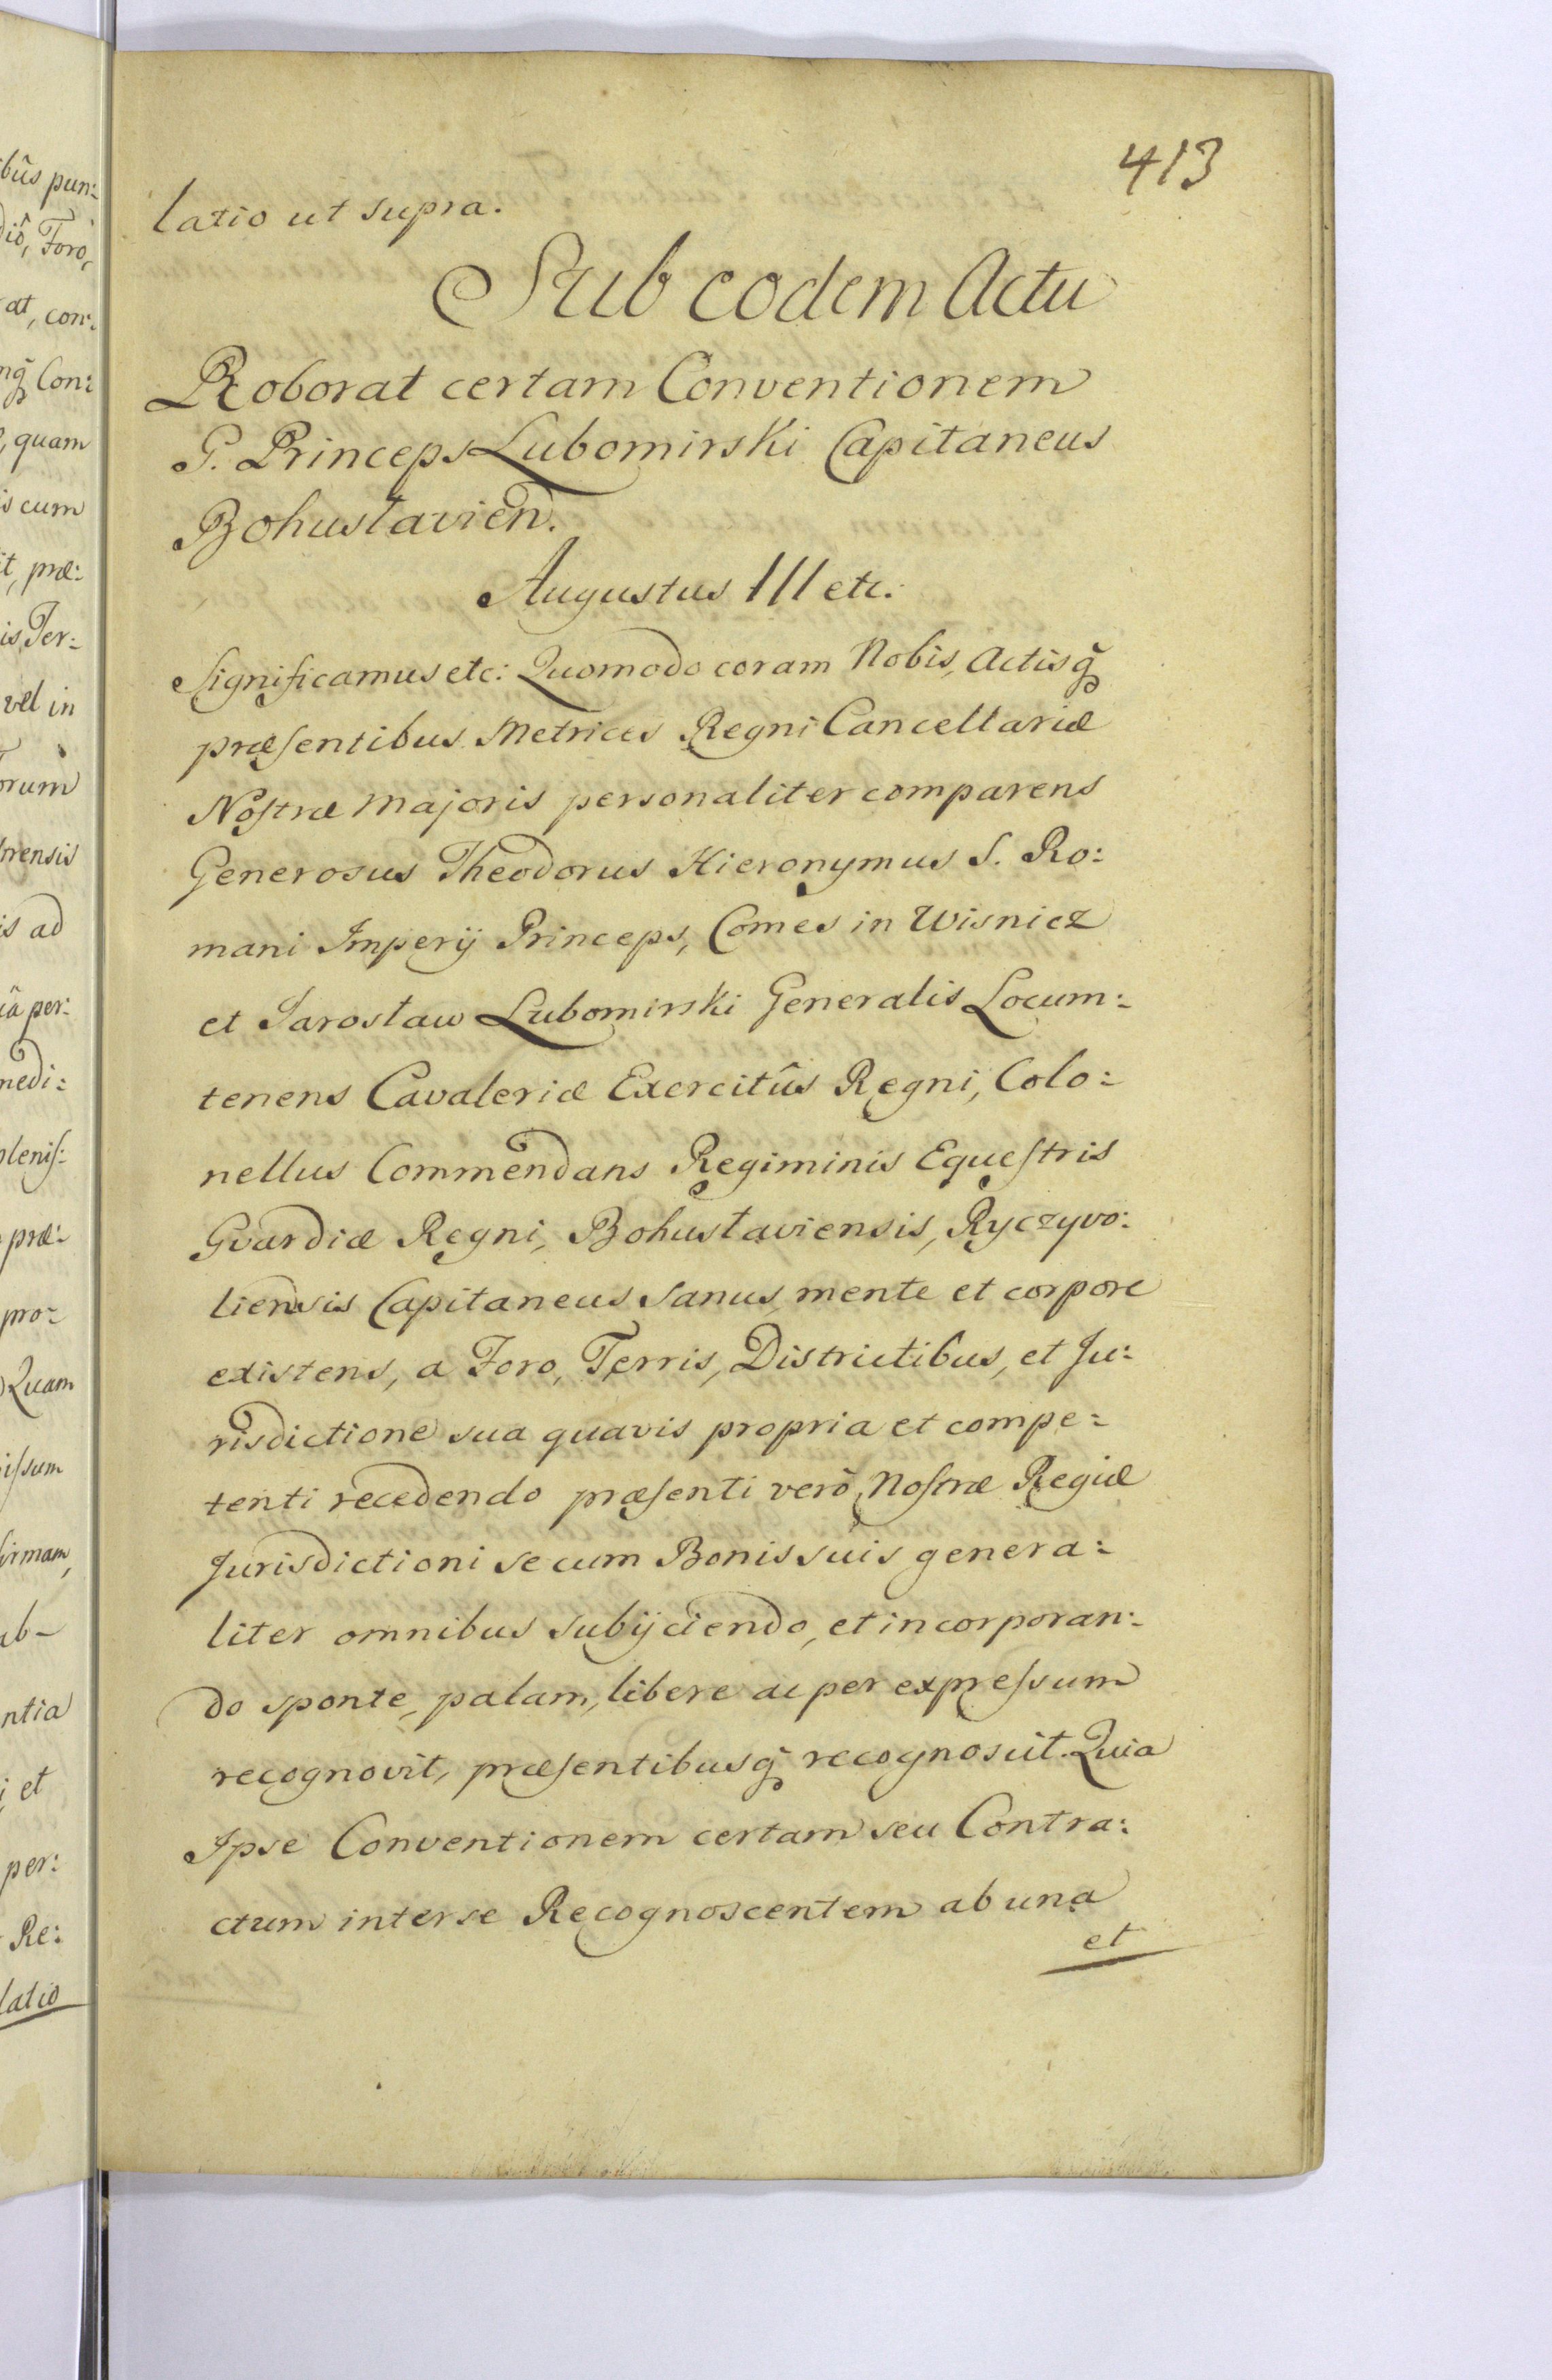 413
latio ut supra.
Sub eodem Actu
Roborat certam Conventionem
G. Princeps Lubomirski Capitaneus
Bohuslavien̄.
Augustus III etc.
Significamus etc: Quomodo coram Nobis, Actisq̃
præsentibus Metrices Regni Cancellariæ
Nostræ Majoris personaliter comparens
Generosus Theodorus Hieronymus S. Ro:
mani Imperij Princeps, Comes in Wisnicz
et Jarosław Lubomirski Generalis Locum:
tenens Cavaleriæ Exercitûs Regni, Colo:
nellus Commendans Regiminis Equestris
Gvardiæ Regni, Bohuslaviensis, Ryczyvo:
liensis Capitaneus Sanus mente et corpore
existens, a Foro, Terris, Districtibus, et Ju:
risdictione sua quavis propria et compe:
tenti recedendo præsenti verò Nostræ Regiæ
Jurisdictioni se cum Bonis suis genera:
liter omnibus subijciendo, et incorporan:
do sponte, palam, libere ac per expressum
recognovit, præsentibusq̃ recognoscit. Quia
Ipse Conventionem certam seu Contra:
ctum inter se Recognoscentem ab una
et
bûs pun:
diô, Foro,
at, con:
nq̃ Con:
quam
is cum
it, præ:
is, Ter:
vel in
orum
is ad
iâ per:
medi:
plenis:
præ:
pro:
Quam
issum
firmam,
ab-
ntia
i et
per:
Re:
latio